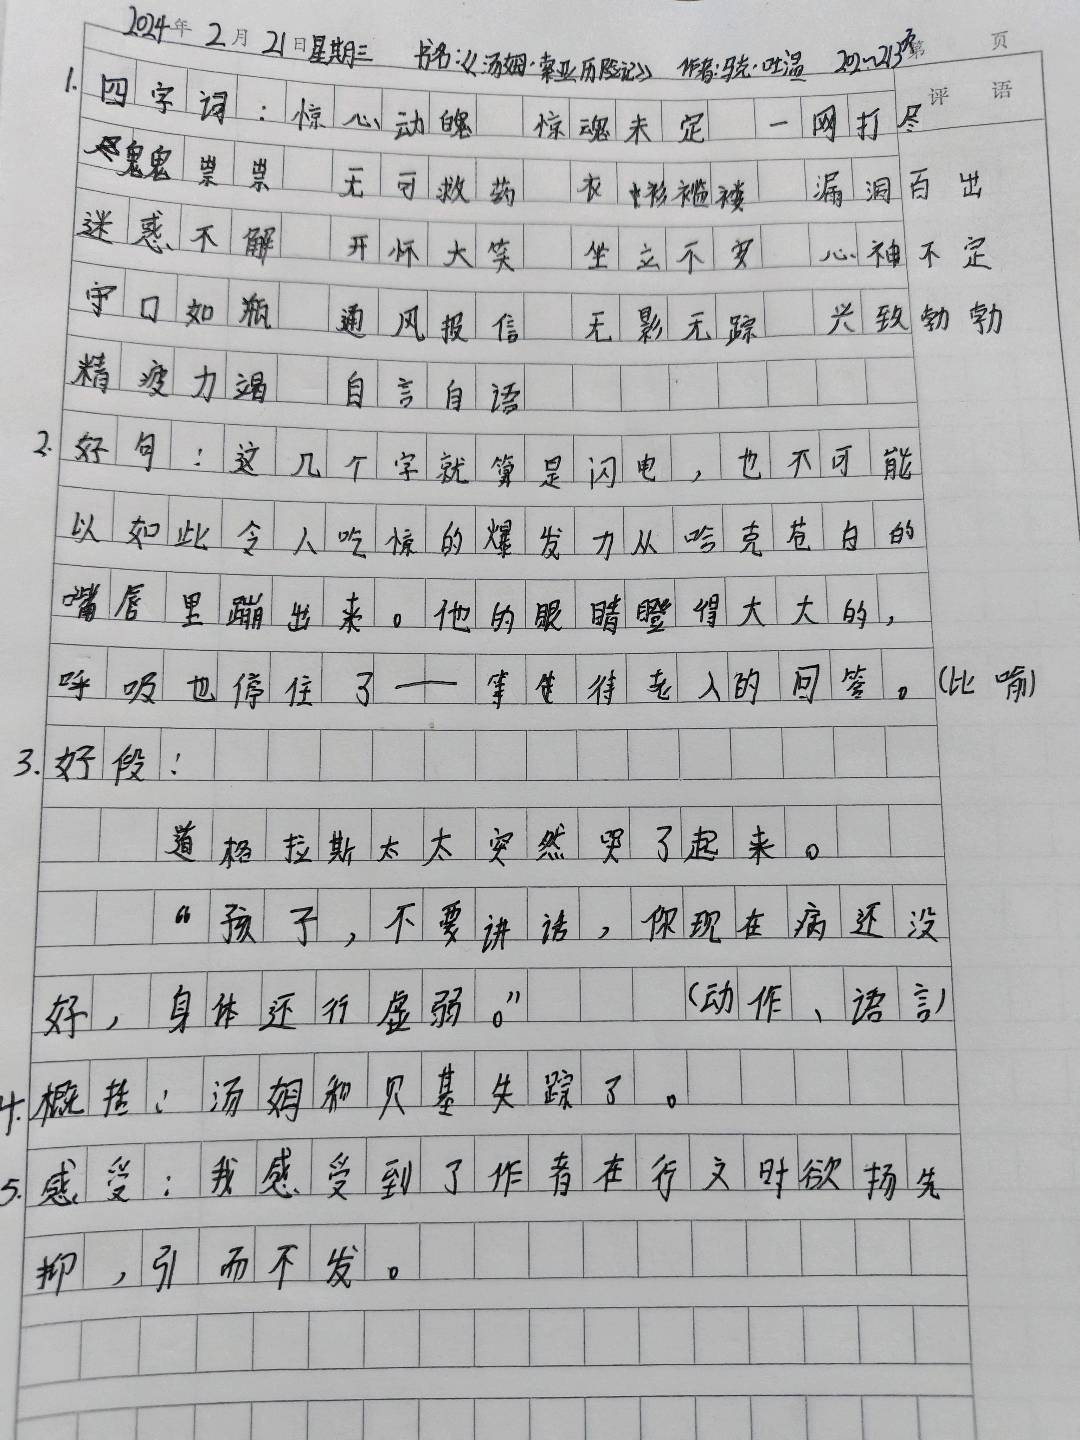 2024年2月21日星期三 书名:《汤姆·索亚历险记》 作者:马克·吐温 202~213页 第 页
评语
1. 四字词:惊心动魄 惊魂未定 一网打尽
鬼鬼祟祟 无可救药 衣衫褴褛 漏洞百出
迷惑不解 开怀大笑 坐立不安 心神不定
守口如瓶 通风报信 无影无踪 兴致勃勃
精疲力竭 自言自语
2. 好句:这几个字就算是闪电,也不可能
以如此令人吃惊的爆发力从哈克苍白的
嘴唇里蹦出来。他的眼睛瞪得大大的,
呼吸也停住了——等待老人的回答。(比喻)
3. 好段:
道格拉斯太太突然哭了起来。
“孩子,不要讲话,你现在病还没
好,身体还行虚弱。” (动作、语言)
4. 概括:汤姆和贝基失踪了。
5. 感受:我感受到了作者在行文时欲扬先
抑,引而不发。